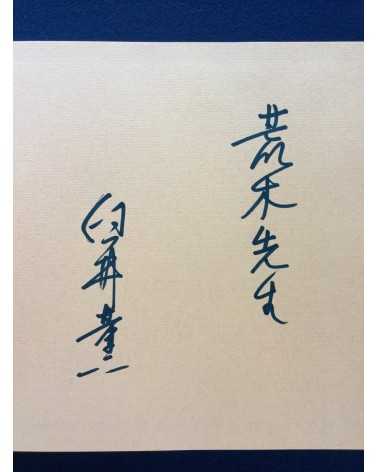 荒木先生
臼井薫